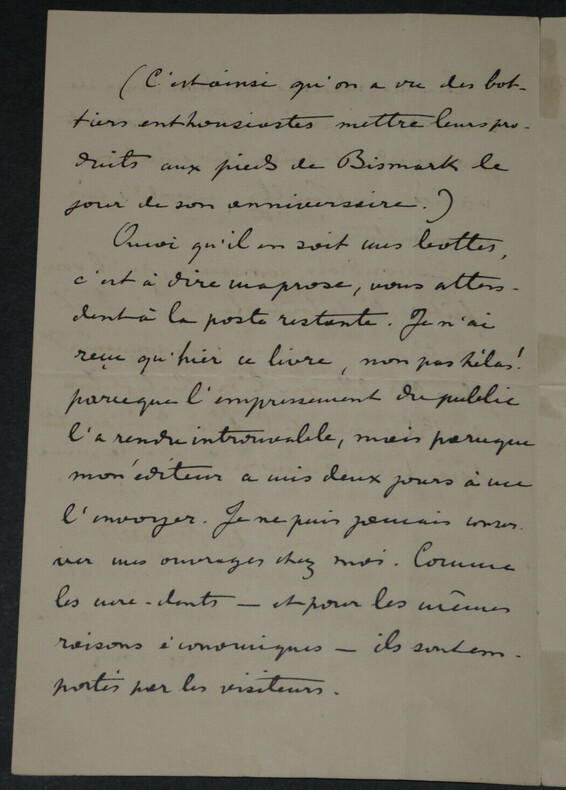 (C'est ainsi qu'on a vu des bot-
tiers enthousiastes mettre leurs pro-
duits aux pieds de Bismark le
jour de son anniversaire.)
Quoi qu'il en soit mes bottes,
c'est à dire ma prose, vous atten-
dent à la poste restante. Je n'ai
reçu qu'hier ce livre, non pas hélas!
parceque l'empressement du public
l'a rendu introuvable, mais parceque
mon éditeur a mis deux jours à me
l'envoyer. Je ne puis jamais conser
ver mes ouvrages chez moi. Comme
les cure-dents — et pour les mêmes
raisons économiques — ils sont em-
portés par les visiteurs.